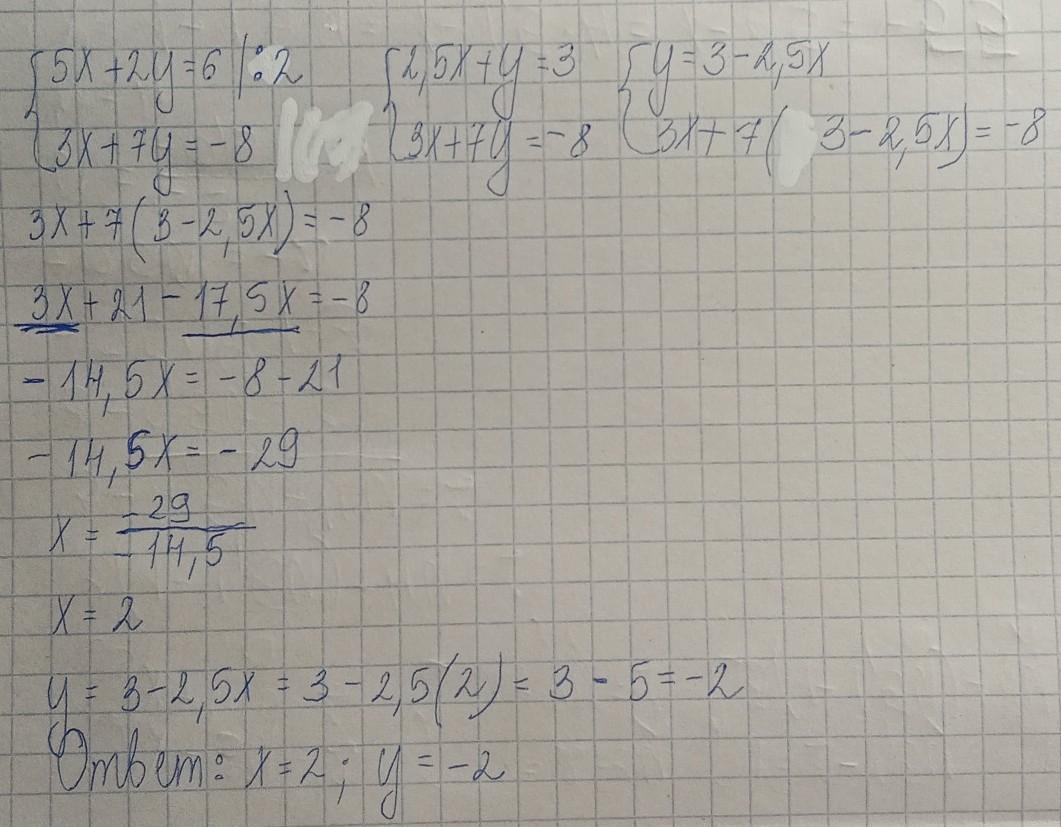 {5x+2y=6 |:2 {2,5x+y=3 {y=3-2,5x
{3x+7y=-8 {3x+7y=-8 {3x+7(3-2,5x)=-8
3x+7(3-2,5x)=-8
3x+21-17,5x=-8
-14,5x=-8-21
-14,5x=-29
x=-29/-14,5
x=2
y=3-2,5x=3-2,5(2)=3-5=-2
Ответ: x=2; y=-2